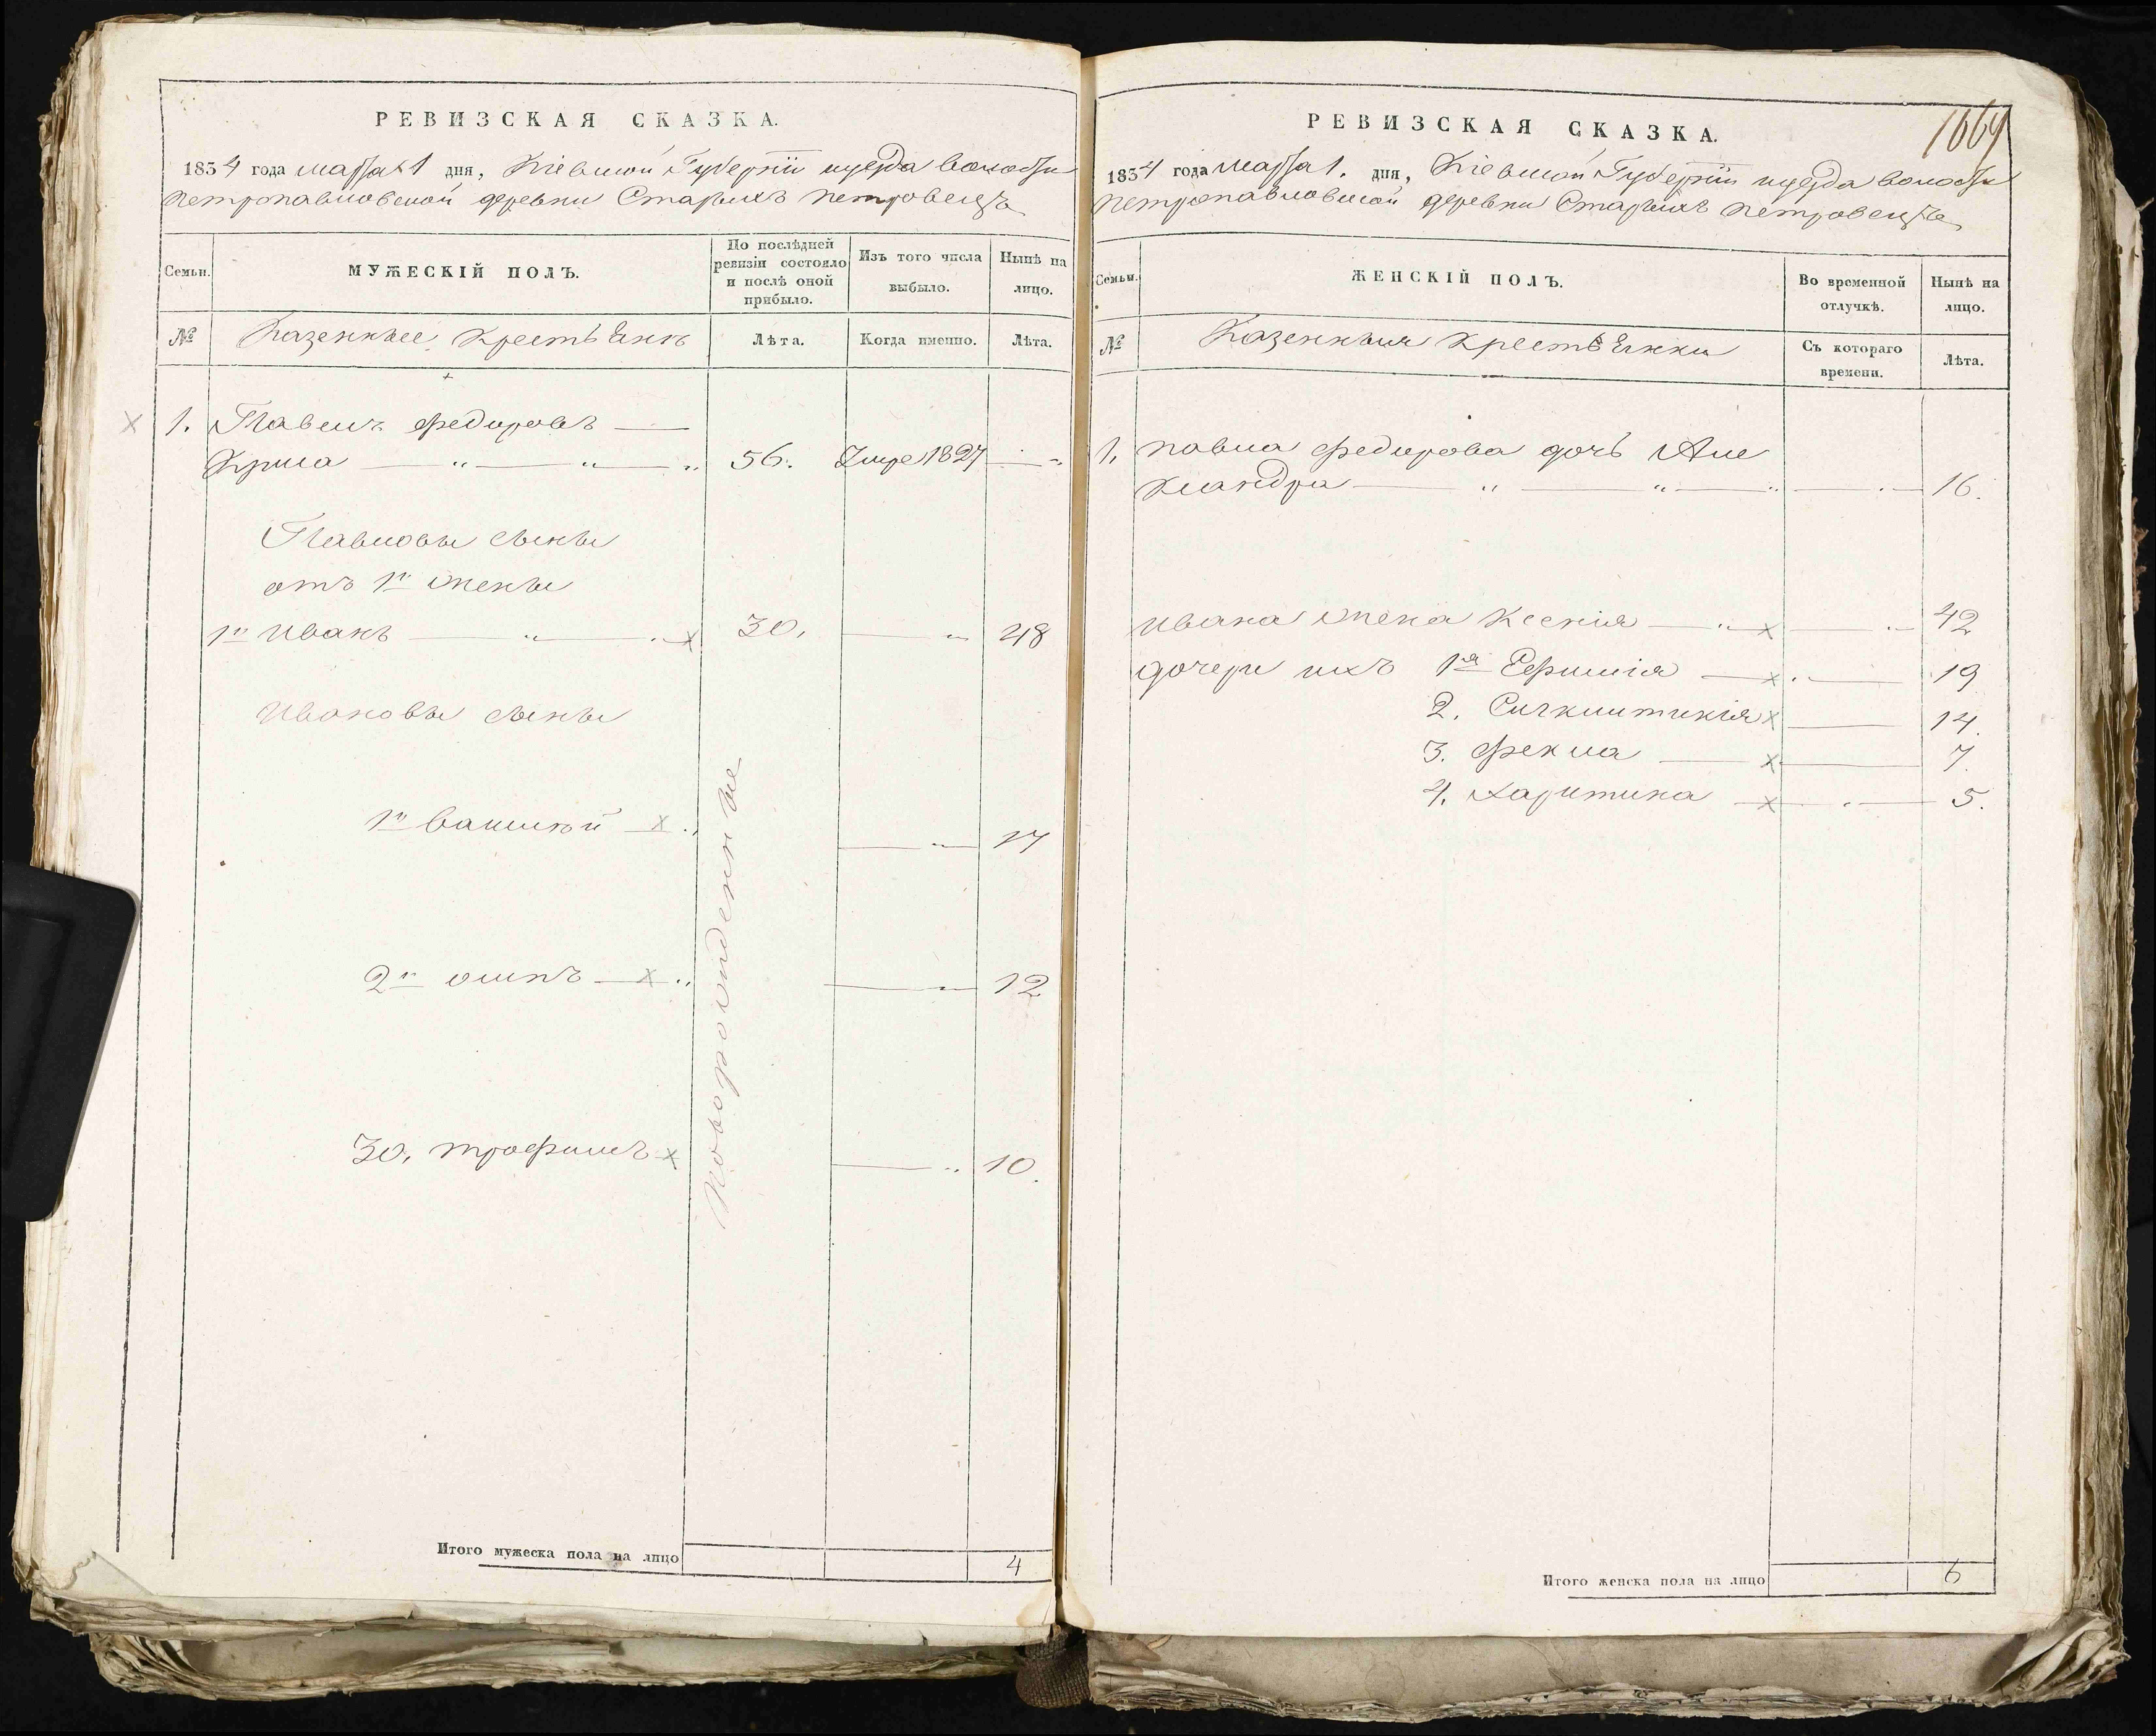 РЕВИЗСКАЯ СКАЗКА.
1834 года марта 1 дня, Кіевской Губерніи уезда волости
петропавловской деревни Старыхъ петровецъ
Семьи.
МУЖЕСКІЙ ПОЛЪ.
По послѣдней ревизіи состояло и послѣ оной прибыло.
Изъ того числа выбыло.
Нынѣ на лицо.
№
Казенные крестьяне
Лѣта.
Когда именно.
Лѣта.
1. Павелъ федоровъ
56. 1827
Павловы сыны
отъ 1й жены
1й иванъ 30. 48
ивановы сыны
1й василій 17
2й осипъ 12
3й, трофимъ 10.
Новорожденные
Итого мужеска пола на лицо 4
1669
РЕВИЗСКАЯ СКАЗКА.
1834 года марта 1. дня, Кіевской Губерніи уезда волости
петропавловской деревни Старыхъ петровецъ
Семьи.
ЖЕНСКІЙ ПОЛЪ.
Во временной отлучкѣ.
Нынѣ на лицо.
№
Казенныя крестьянки
Съ котораго времени.
Лѣта.
1. павла федорова дочь Але
ксандра 16.
ивана жена ксенія 42
дочери ихъ 1я 19
2. Синклитикія 14.
3. фекла 7
4. харитина 5.
Итого женска пола на лицо 6